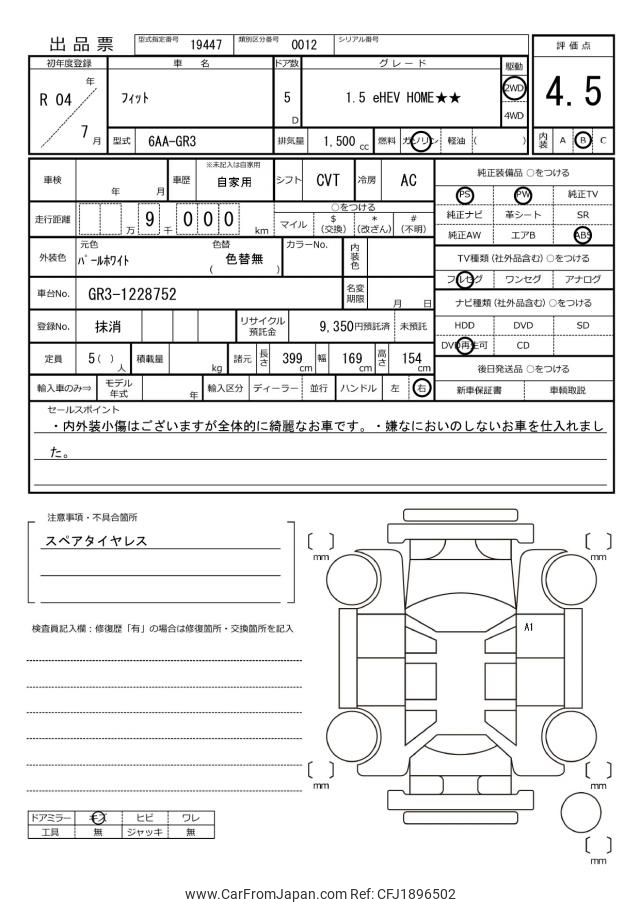 出品票 型式指定番号 19447 類別区分番号 0012 シリアル番号
評価点
4.5
内装 A B C
初年度登録 車名 ドア数 グレード 駆動
R 04 年 7 月 フィット 5 D 1.5 eHEV HOME★★ 2WD
4WD
型式 6AA-GR3 排気量 1,500 cc 燃料 ガソリン 軽油 ( )
車検 年 月 車歴 ※未記入は自家用 自家用 シフト CVT 冷房 AC
走行距離 万 9 千 0 0 0 km
○をつける
マイル $ (交換) * (改ざん) # (不明)
外装色 元色 パールホワイト 色替 ( 色替無 ) カラーNo. 内装色
車台No. GR3-1228752 名変期限 月 日
登録No. 抹消 リサイクル預託金 9,350円預託済 未預託
定員 5( ) 人 積載量 kg 諸元 長さ 399 cm 幅 169 cm 高さ 154 cm
輸入車のみ⇒ モデル年式 年 輸入区分 ディーラー 並行 ハンドル 左 右
純正装備品 ○をつける
PS PW 純正TV
純正ナビ 革シート SR
純正AW エアB ABS
TV種類 (社外品含む) ○をつける
フルセグ ワンセグ アナログ
ナビ種類 (社外品含む) ○をつける
HDD DVD SD
DVD再生可 CD
後日発送品 ○をつける
新車保証書 車輌取説
セールスポイント
・内外装小傷はございますが全体的に綺麗なお車です。・嫌なにおいのしないお車を仕入れまし
た。
注意事項・不具合箇所
スペアタイヤレス
検査員記入欄：修復歴「有」の場合は修復箇所・交換箇所を記入
mm
mm
A1
mm
mm
mm
ドアミラー キズ ヒビ ワレ
工具 無 ジャッキ 無
www.CarFromJapan.com Ref: CFJ1896502